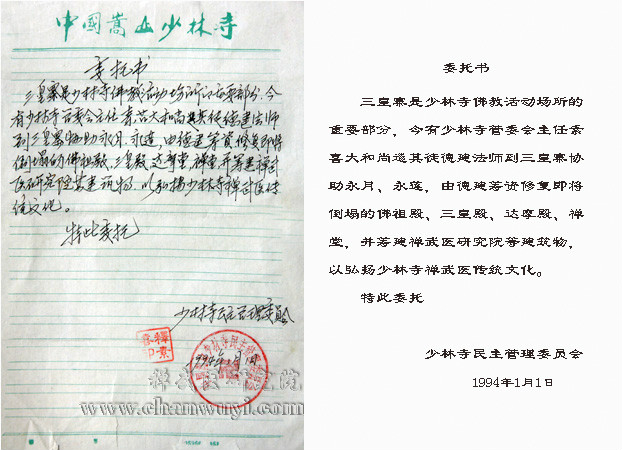 中國嵩山少林寺
委托书
三皇寨是少林寺佛教活动场所的重要部分，今
有少林寺管委会主任素喜大和尚遣其徒德建法师
到三皇寨协助永月、永莲，由德建筹资修复即将
倒塌的佛祖殿、三皇殿、达摩堂、禅堂，并筹建禅武
医研究院等建筑物，以弘扬少林寺禅武医传
统文化。
特此委托
少林寺民主管理委员会
釋素喜印
1994年1月1日
www.chanwuyi.com
委托书
三皇寨是少林寺佛教活动场所的
重要部分，今有少林寺管委会主任素
喜大和尚遣其徒德建法师到三皇寨协
助永月、永莲，由德建筹资修复即将
倒塌的佛祖殿、三皇殿、达摩殿、禅
堂，并筹建禅武医研究院等建筑物，
以弘扬少林寺禅武医传统文化。
特此委托
少林寺民主管理委员会
1994年1月1日